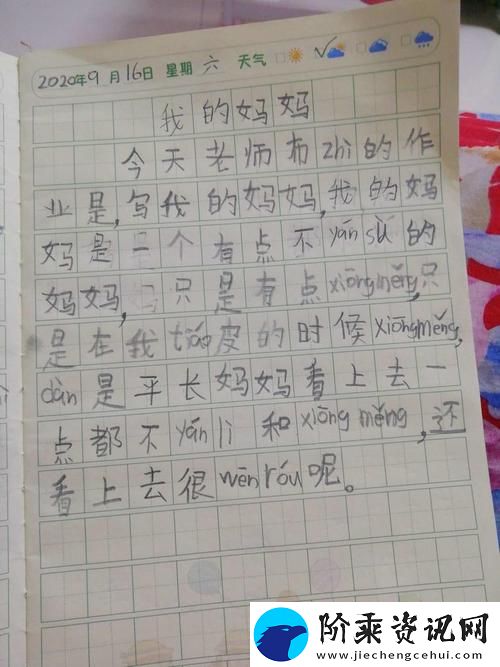 2020年9月16日 星期六 天气
我的妈妈
今天老师布zhi的作
业是,写我的妈妈,我的妈
妈是一个有点不yán sù的
妈妈,只是有点xiōngměng,只
是在我tiáo皮的时候xiōngměng,
dàn是平长妈妈看上去一
点都不yán lì和xiōng měng,还
看上去很wēn róu呢。
阶乘资讯网
www.jiechengcehui.com